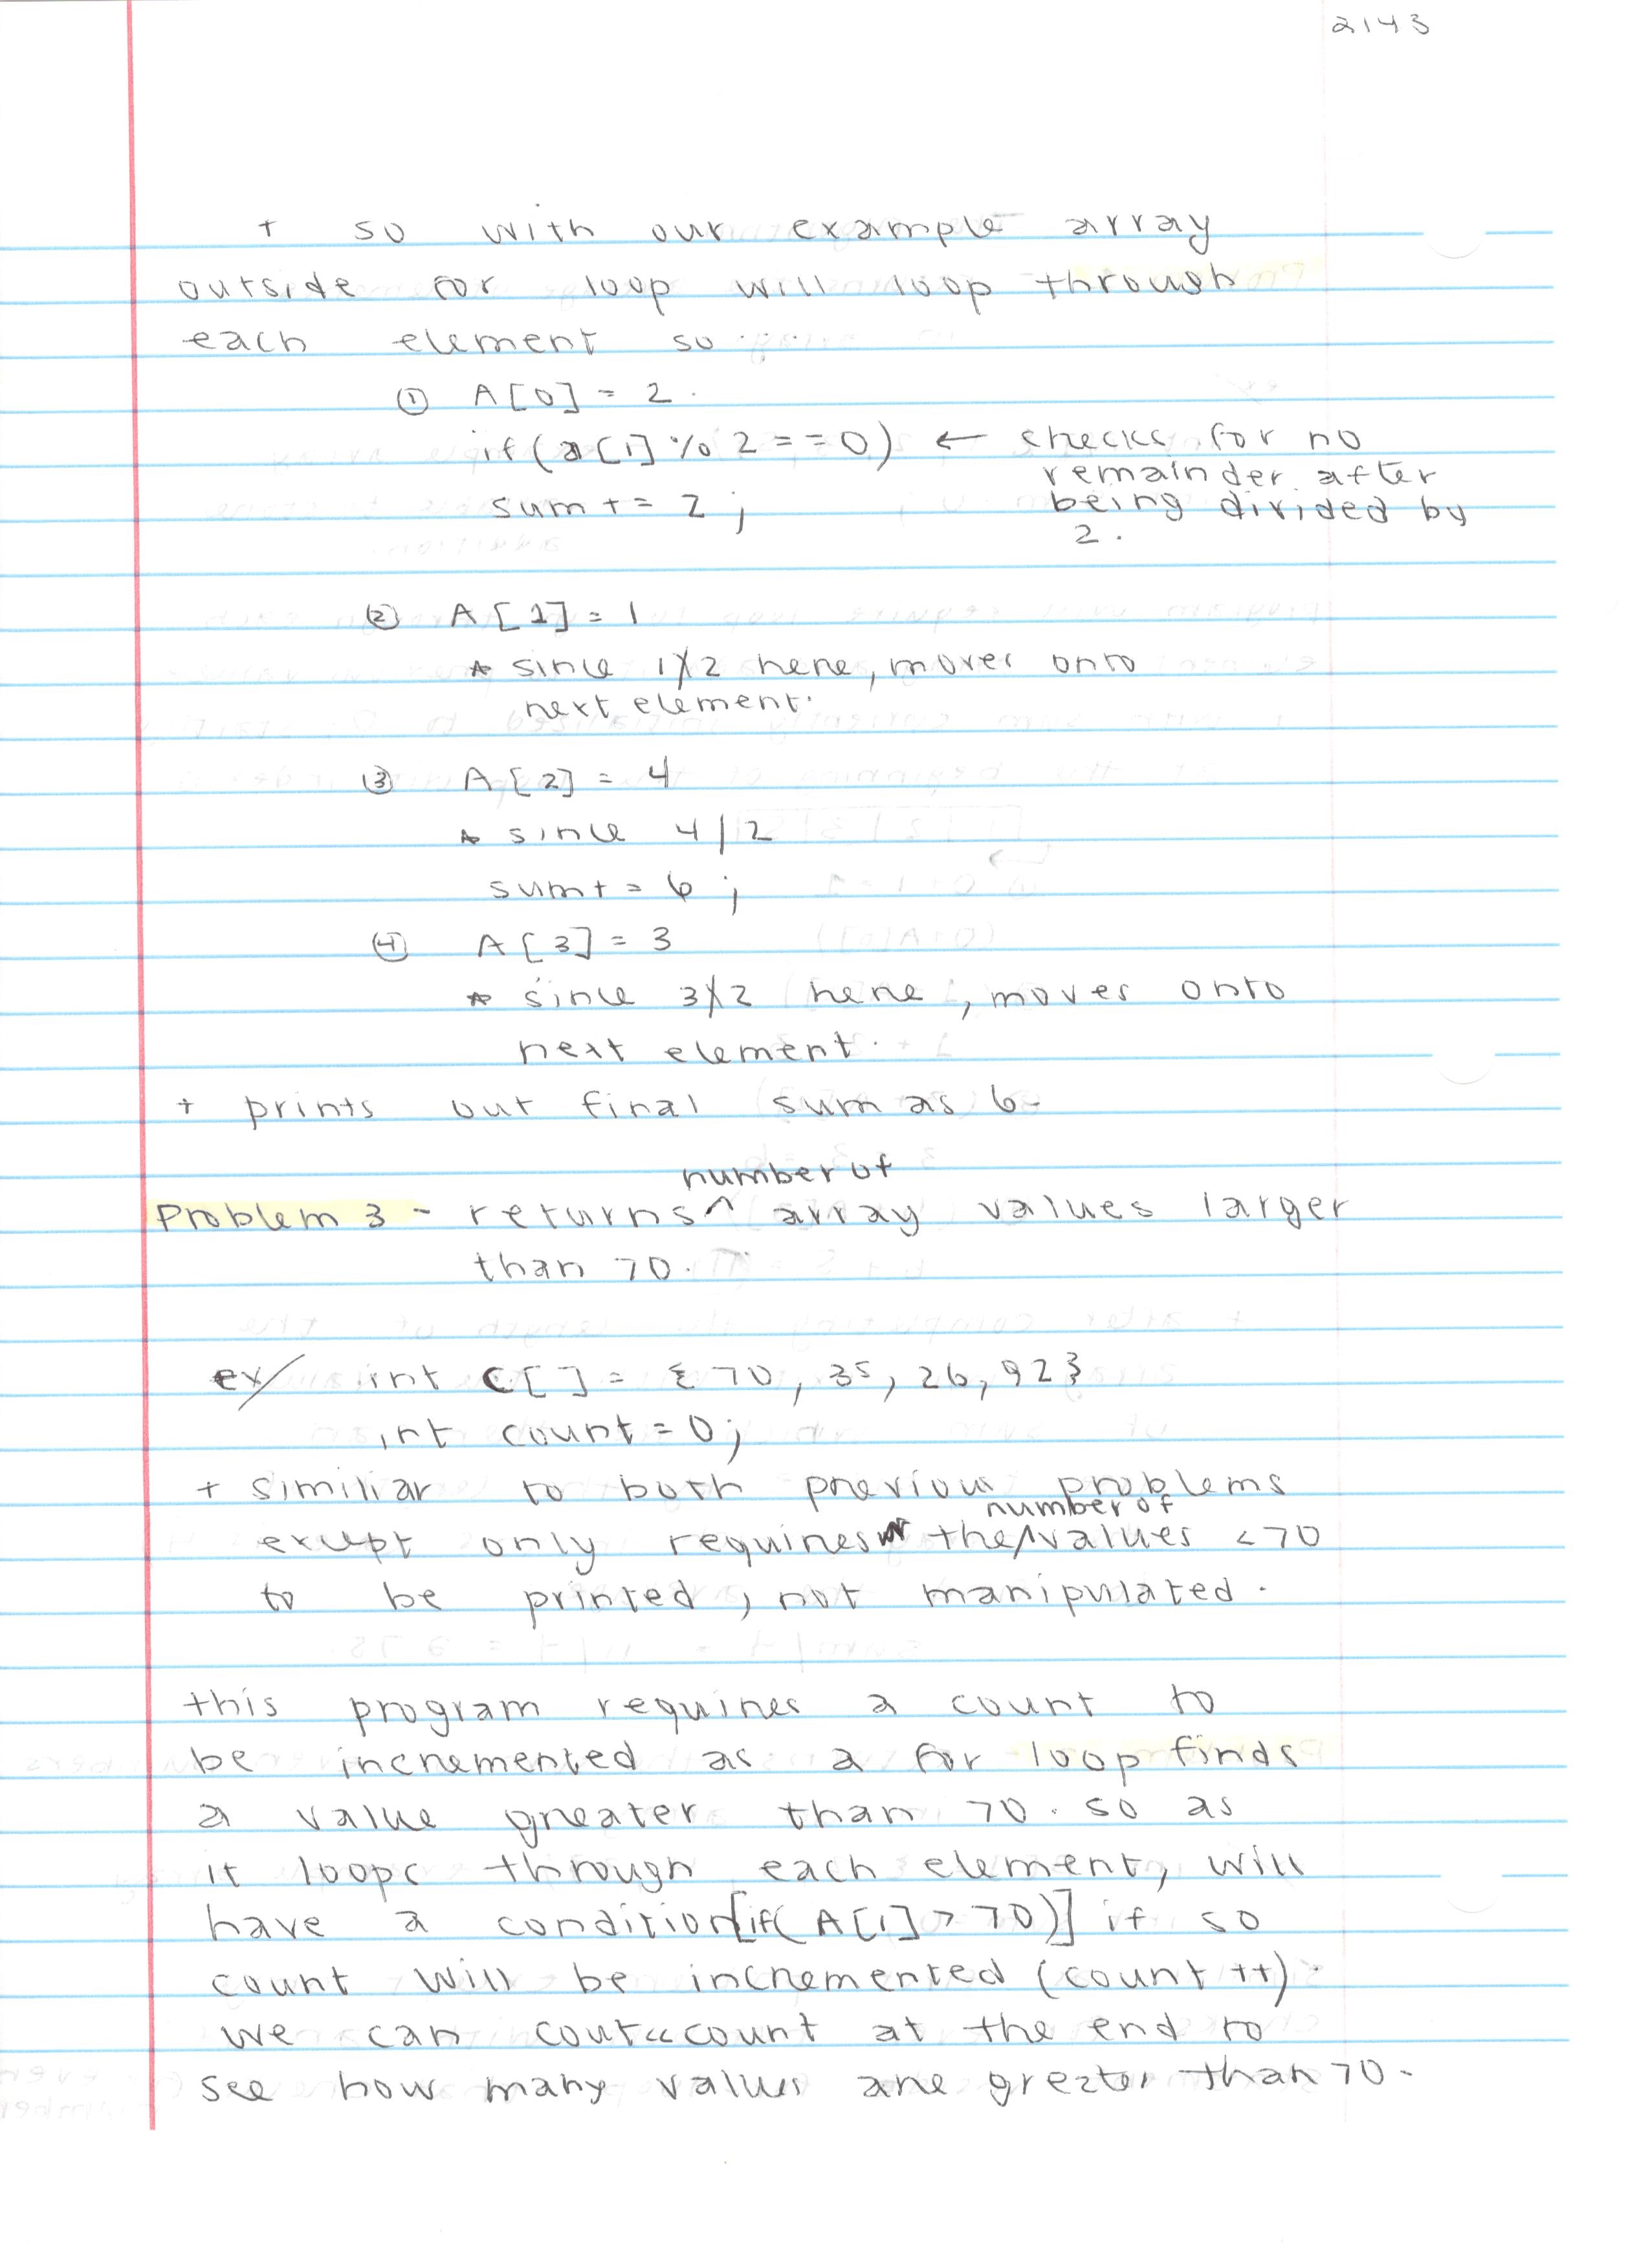 2143
+ so with our example array
outside for loop will loop through
each element so ....
① A[0] = 2.
if (a[i] % 2 == 0) ← checks for no
remainder after
sum += 2;
being divided by
2.
② A[1] = 1
* since 1∤2 here, moves onto
next element.
③ A[2] = 4
* since 4|2
sum += 6;
④ A[3] = 3
* since 3∤2 here, moves onto
next element.
+ prints out final sum as 6.
number of
Problem 3 - returns ^ array values larger
than 70.
ex/ int C[] = {70, 35, 26, 92}
int count = 0;
+ similiar to both previous problems
number of
except only requires the ^ values <70
to be printed, not manipulated.
this program requires a count to
be incremented as a for loop finds
a value greater than 70. so as
it loops through each element, will
have a condition [if( A[i] > 70)] if so
count will be incremented (count ++).
we can cout<<count at the end to
see how many values are greater than 70.